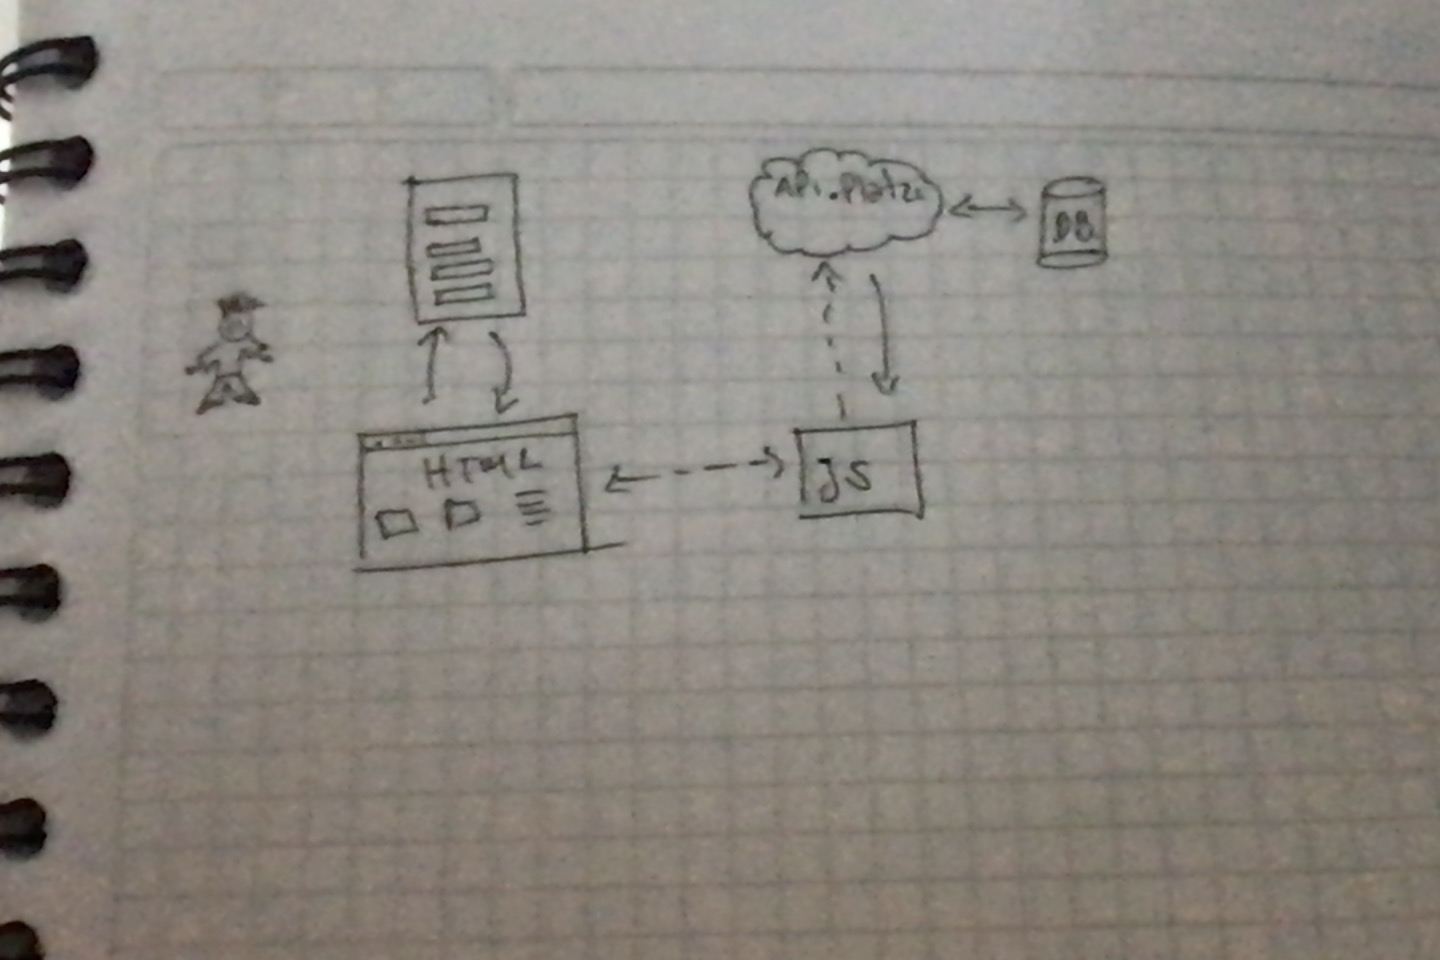 API.Platzi
DB
HTML
JS